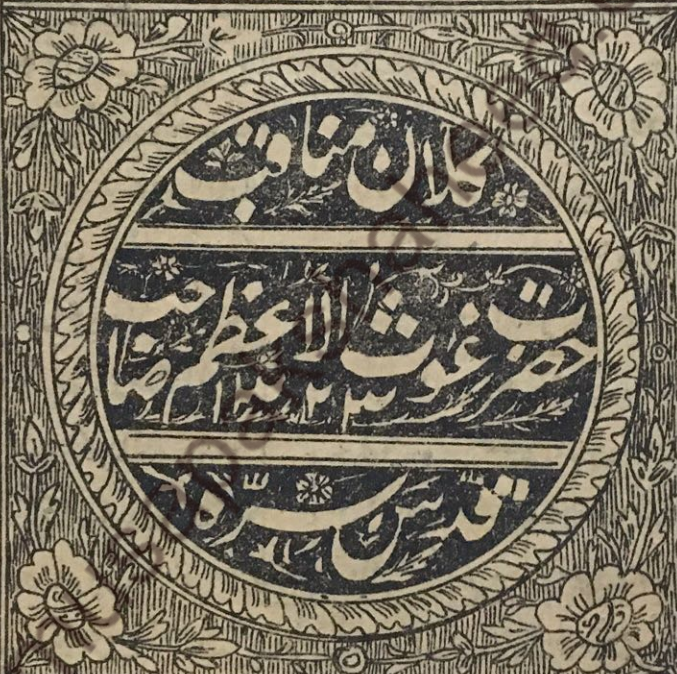 کلان مناقب
حضرت غوث الاعظم صاحب
قدس سرہ